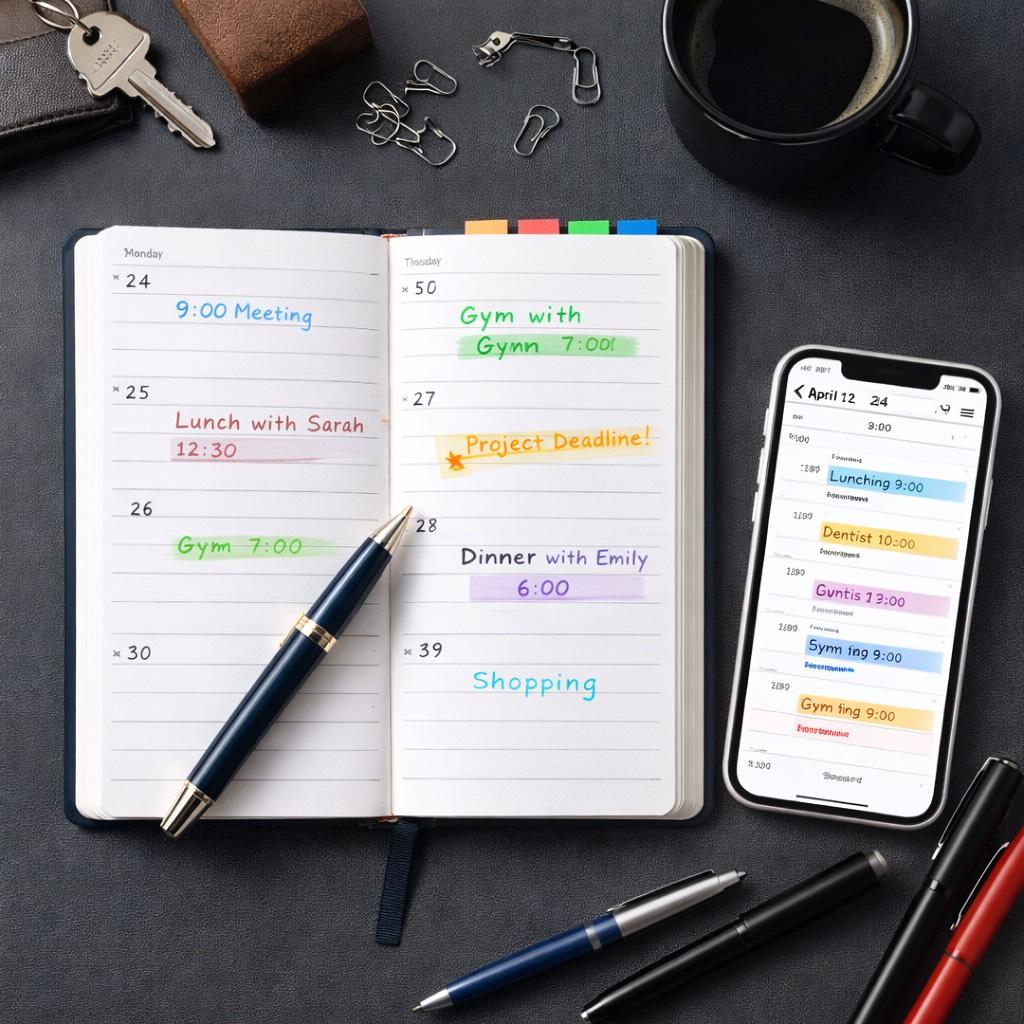 Monday
24
9:00 Meeting
25
Lunch with Sarah
12:30
26
Gym 7:00
30
50
Gym with
Gymn 7:00
27
Project Deadline!
28
Dinner with Emily
6:00
39
Shopping
April 12 24
9:00
Lunching 9:00
Dentist 10:00
Guntis 13:00
Symīng 9:00
Gym fing 9:00